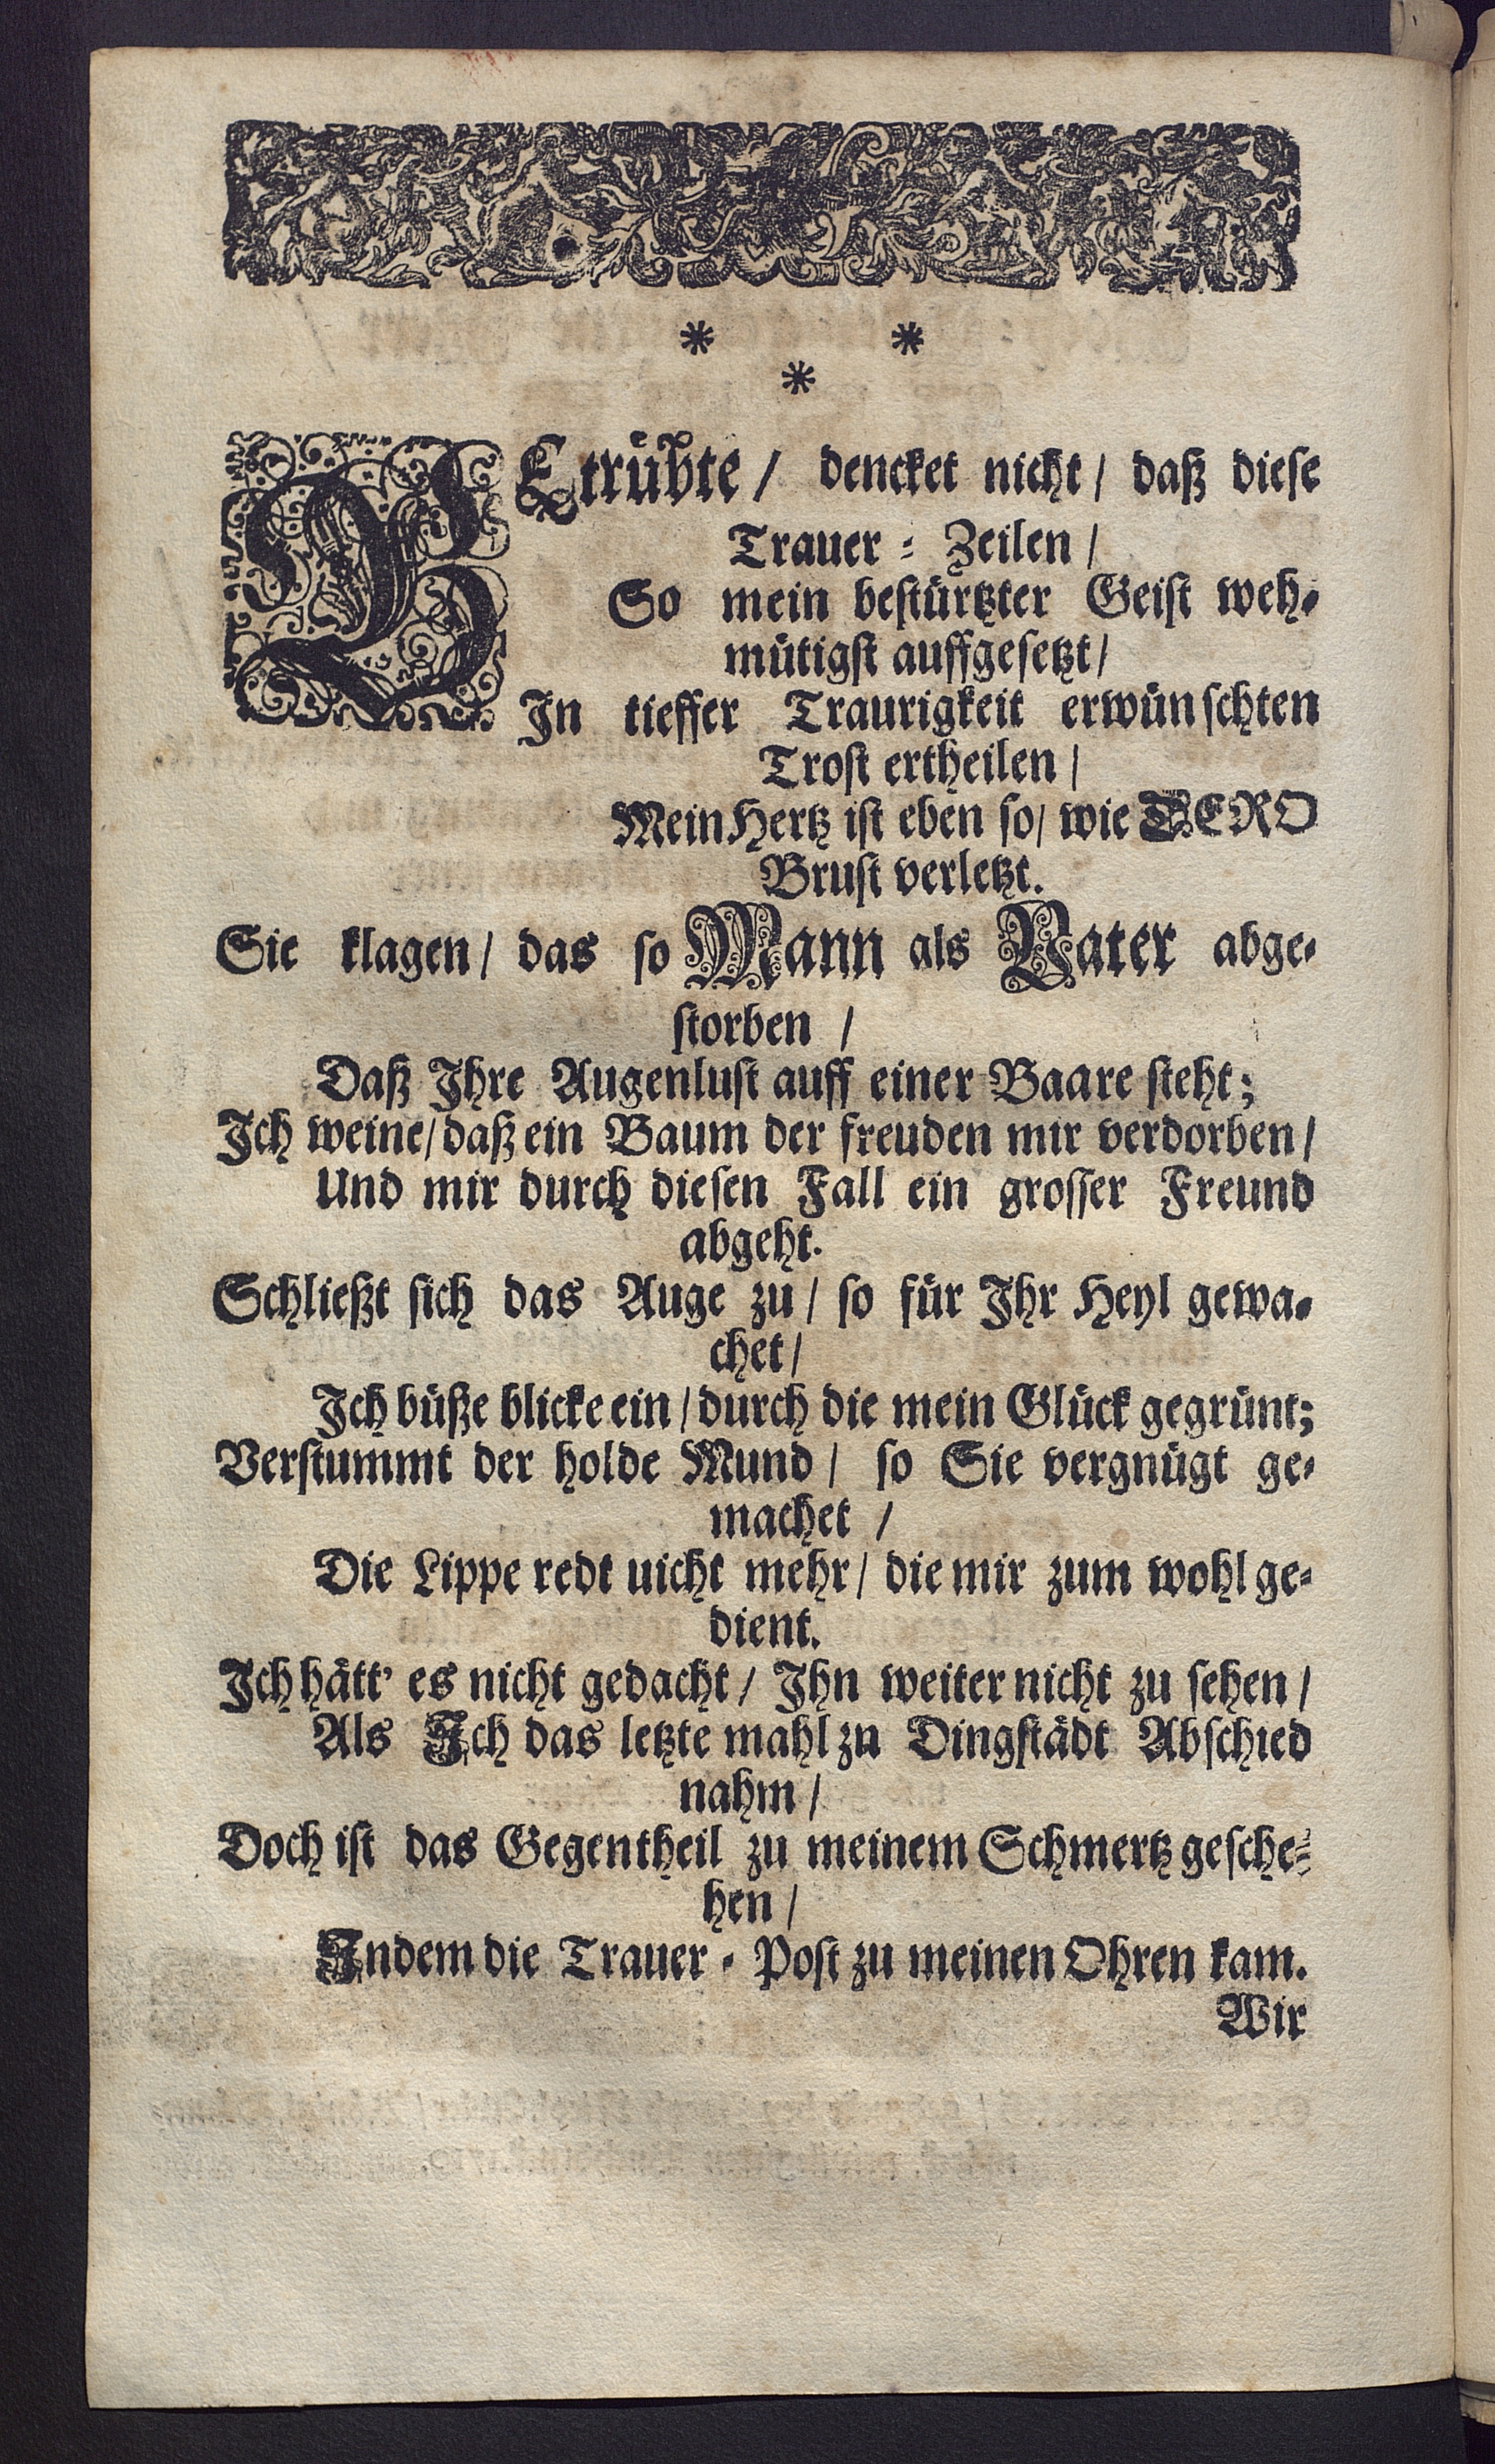 * *
*
BEtrübte / dencket nicht / daß diese
Trauer = Zeilen /
So mein bestürtzter Geist weh-
mütigst auffgesetzt /
In tieffer Traurigkeit erwünschten
Trost ertheilen /
Mein Hertz ist eben so / wie DERO
Brust verletzt.
Sie klagen / das so Mann als Vater abge-
storben /
Daß Ihre Augenlust auff einer Baare steht;
Ich weine / daß ein Baum der freuden mir verdorben /
Und mir durch diesen Fall ein grosser Freund
abgeht.
Schließt sich das Auge zu / so für Ihr Heyl gewa-
chet /
Ich büße blicke ein / durch die mein Glück gegrünt;
Verstummt der holde Mund / so Sie vergnügt ge-
machet /
Die Lippe redt uicht mehr / die mir zum wohl ge-
dient.
Ich hätt' es nicht gedacht / Ihn weiter nicht zu sehen /
Als Ich das letzte mahl zu Dingstädt Abschied
nahm /
Doch ist das Gegentheil zu meinem Schmertz gesche-
hen /
Indem die Trauer - Post zu meinen Ohren kam.
Wir